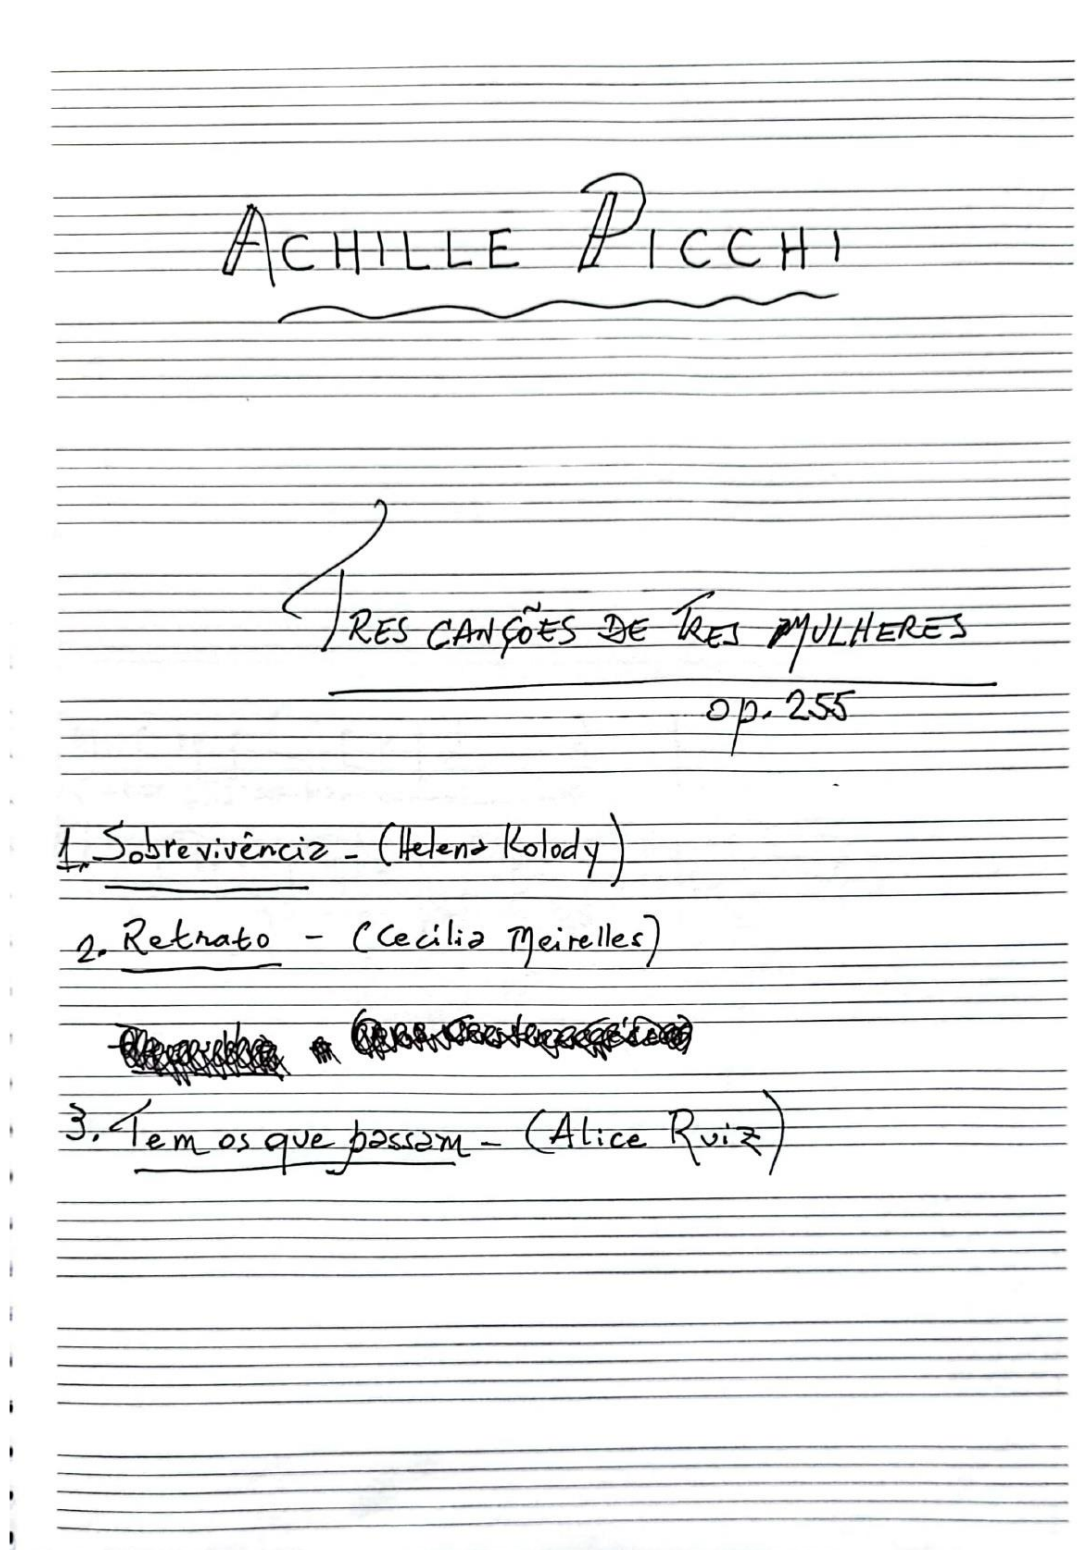 ACHILLE PICCHI
TRES CANÇÕES DE TRES MULHERES
op. 255
1. Sobrevivência - (Helena Kolody)
2. Retrato - (Cecília Meirelles)
3. Tem os que passam - (Alice Ruiz)